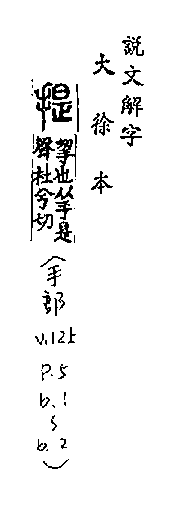 說文解字
大徐本
提
挈也从手是
聲杜兮切
(手部
v.12上
p.5
b.1
5
b.2)